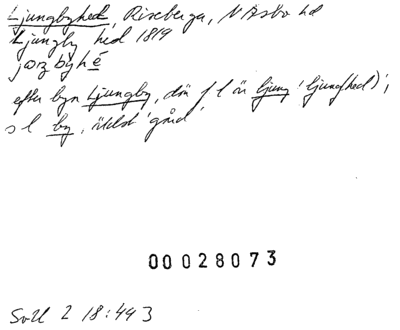 Ljungbyhed, Riseberga, N Åsbo hd
Ljungby hed 1819
jøŋbyhé
efter byn Ljungby, där f l är ljung 'ljunghed';
s l by, äldst 'gård'
00028073
SOU 2 18:443